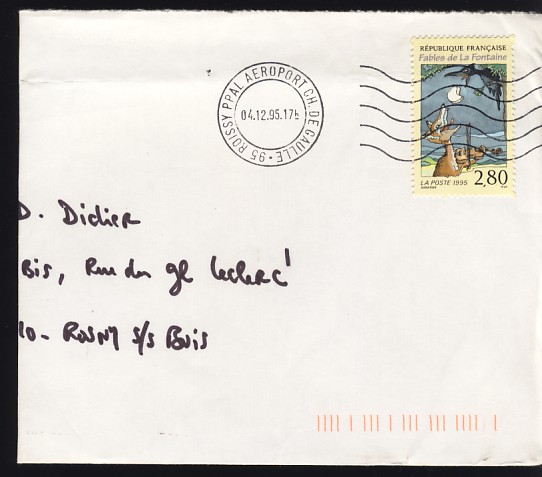 RÉPUBLIQUE FRANÇAISE
Fables de La Fontaine
LA POSTE 1995
2,80
95 - ROISSY PPAL AEROPORT CH. DE GAULLE
04.12.95.17h
D. Didier
Bis, Rue du gl Leclerc
10 - ROSNY S/S Bois